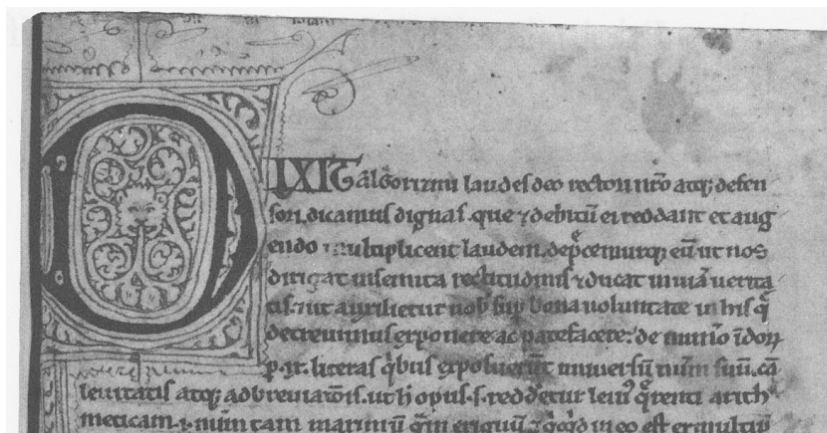 DIXIT algorizmi laudes deo rectori nr̄o atq; defen
sori. dicamus dignas. que ⁊ debitū ei reddant et aug
endo multiplicent laudem. dep̄cemurq; eū ut nos
dirigat in semita rectitudinis ⁊ ducat in uiā uerita
tis. ⁊ ut auxilietur nob̄ sup̄ bona uoluntate in his q̄
decreuimus exponere ac patefacere: de num̄o īdoꝝ
p. ix. literas q̄bus exposuerunt uniuersū num̄ suū. cā
leuitatis atq; adbreuiatōis. ut h̄ opus .s. redderetur leui᾽ q̄renti arith
meticam .i. num̄ tam maximū q̄m exiguū. ⁊ q̄cq̄d in eo est ex multi